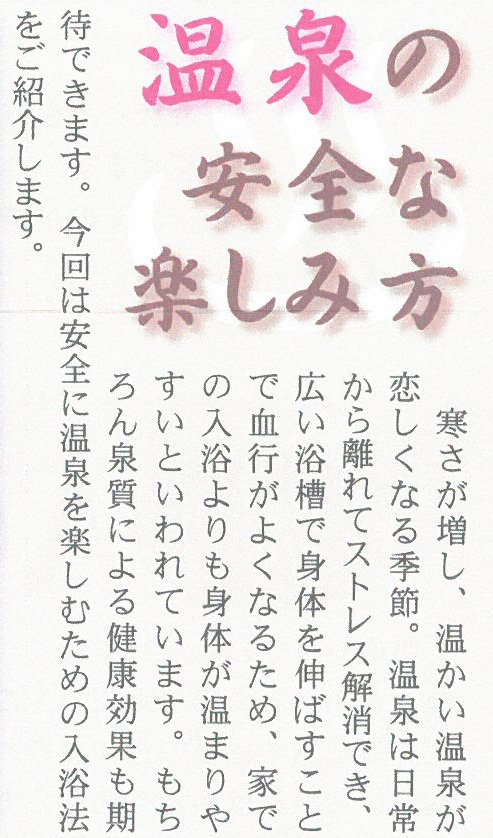 温泉の
安全な
楽しみ方
寒さが増し、温かい温泉が
恋しくなる季節。温泉は日常
から離れてストレス解消でき、
広い浴槽で身体を伸ばすこと
で血行がよくなるため、家で
の入浴よりも身体が温まりや
すいといわれています。もち
ろん泉質による健康効果も期
待できます。今回は安全に温泉を楽しむための入浴法
をご紹介します。